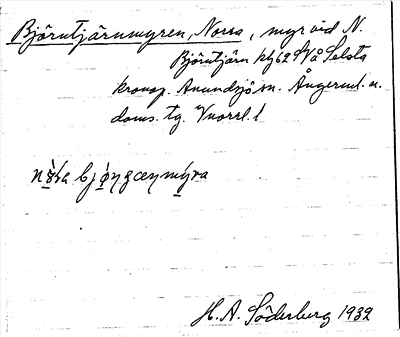 Björntjärnmyren, Norra, myr vid N.
Björntjärn kfg 62 SVå Selsta
kronop. Anundsjö sn. Ångerml. n.
doms. tg. Vnorrl. l
nɔ̀ra bjòŋœnmýra
H. A. Söderberg 1932